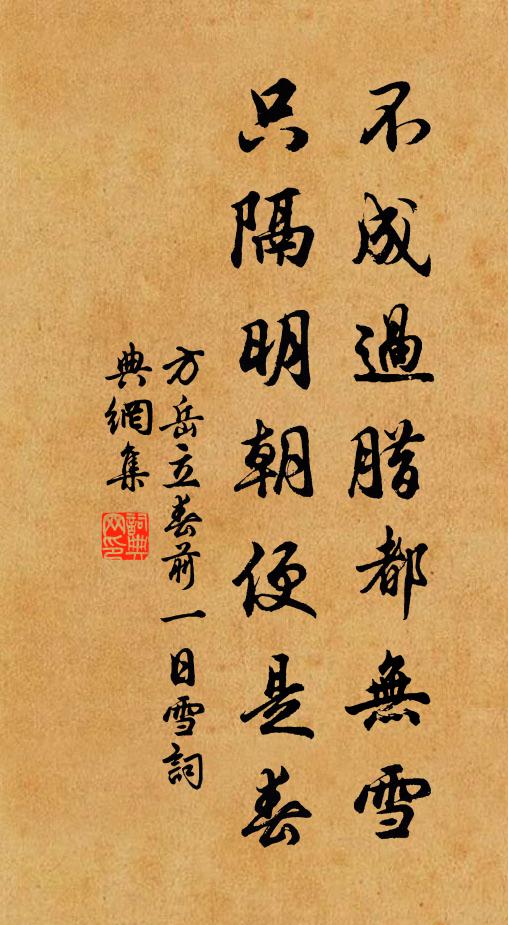 不成過腊都無雪
只隔明朝便是春
方岳立春前一日雪詞
典網集
詞典網印